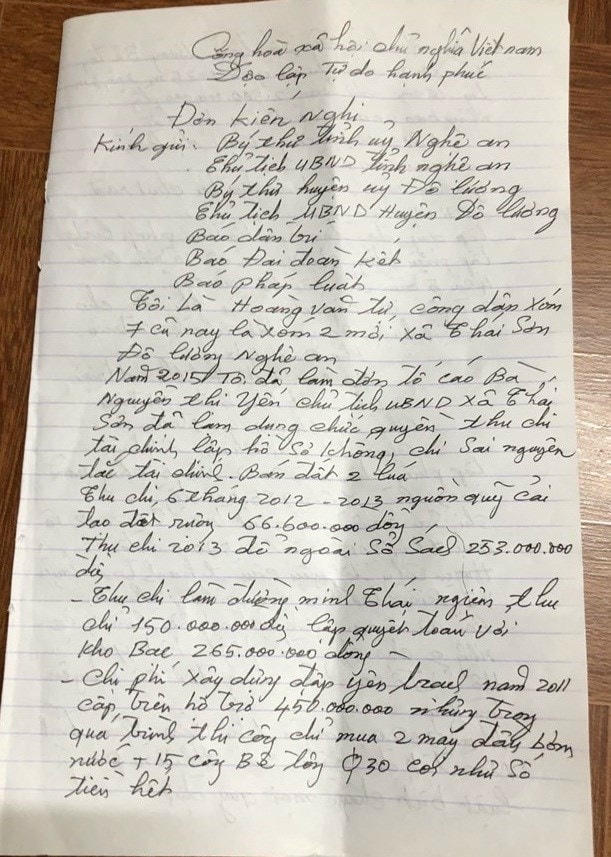 Cộng hoà xã hội chủ nghĩa Việt nam
Độc lập Tự do hạnh phúc
Đơn kiến nghị
Kính gửi: Bý thư tỉnh uỷ Nghệ an
Chủ tịch UBND tỉnh nghệ an
Bý thư huyện uy Đô lương
Chủ tịch UBND Huyện Đô lương
Báo dân trí
Báo Đại đoàn kết
Báo pháp luật
Tôi Là Hoàng văn tư, công dân xóm
7 cũ nay là xóm 2 mới xã Thái Sơn
Đô lương Nghệ an
Năm 2015 Tôi đã làm đơn tố cáo Bà
Nguyễn thị Yến chủ tịch UBND xã Thái
Sơn đã lạm dụng chức quyền thu chi
tài chính lập hồ sơ khống, chi Sai nguyên
tắc tài chính. Bán đất 2 lúa
Thu chi 6 tháng 2012 - 2013 nguồn quỹ cải
tạo đất ruộng 66.600.000 đồng
Thu chi 2013 để ngoài Sổ Sách 253.000.000
đồ
- Thu chi làm đường minh Thái thu
chỉ 150.000.000 đ lập quyết toán với
kho Bạc 265.000.000 đồng
- Chi phí xây dựng đập yên trạch năm 2011
cấp trên hỗ trợ 450.000.000 nhưng trong
qua trình thi công chỉ mua 2 may bơm
nước + 15 cây Bê tông φ30 coi như Số
tiền hết